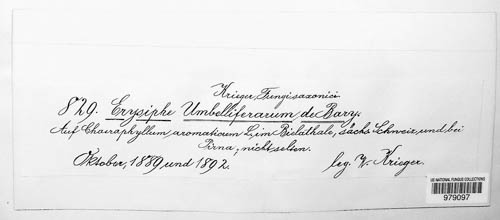 Krieger, Fungi saxonici
829. Erysiphe Umbelliferarum de Bary.
Auf Chaerophyllum aromaticum L, im Bielathale, sächs. Schweiz, und bei
Pirna, nicht selten.
Oktober, 1889 und 1892. leg. W. Krieger.
US NATIONAL FUNGUS COLLECTIONS
979097